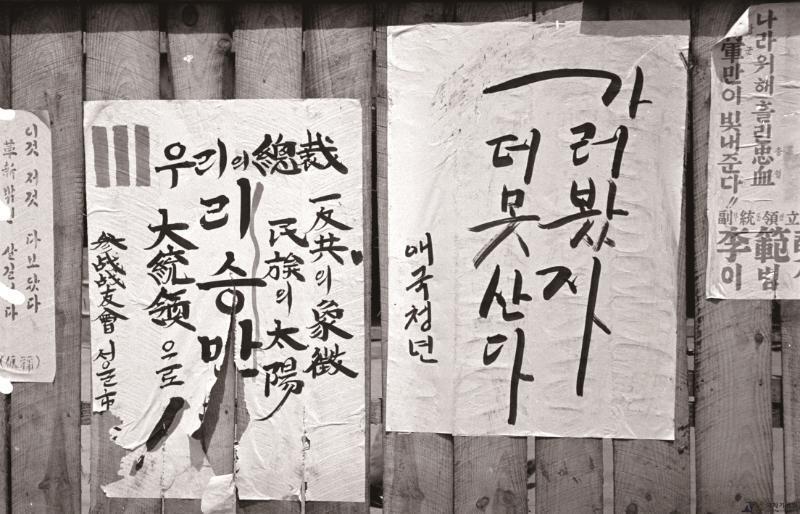 나라위해 흘린 忠血
만이 빛내준다!!
副統領立
李이 範범
가러봤자
더 못산다
애국청년
우리의 總裁
一 反共의 象徵
民族의 太陽
리승만
大統領으로
參战战友會 서울市
이것 저것 다 보았다
革新밖엔 살길